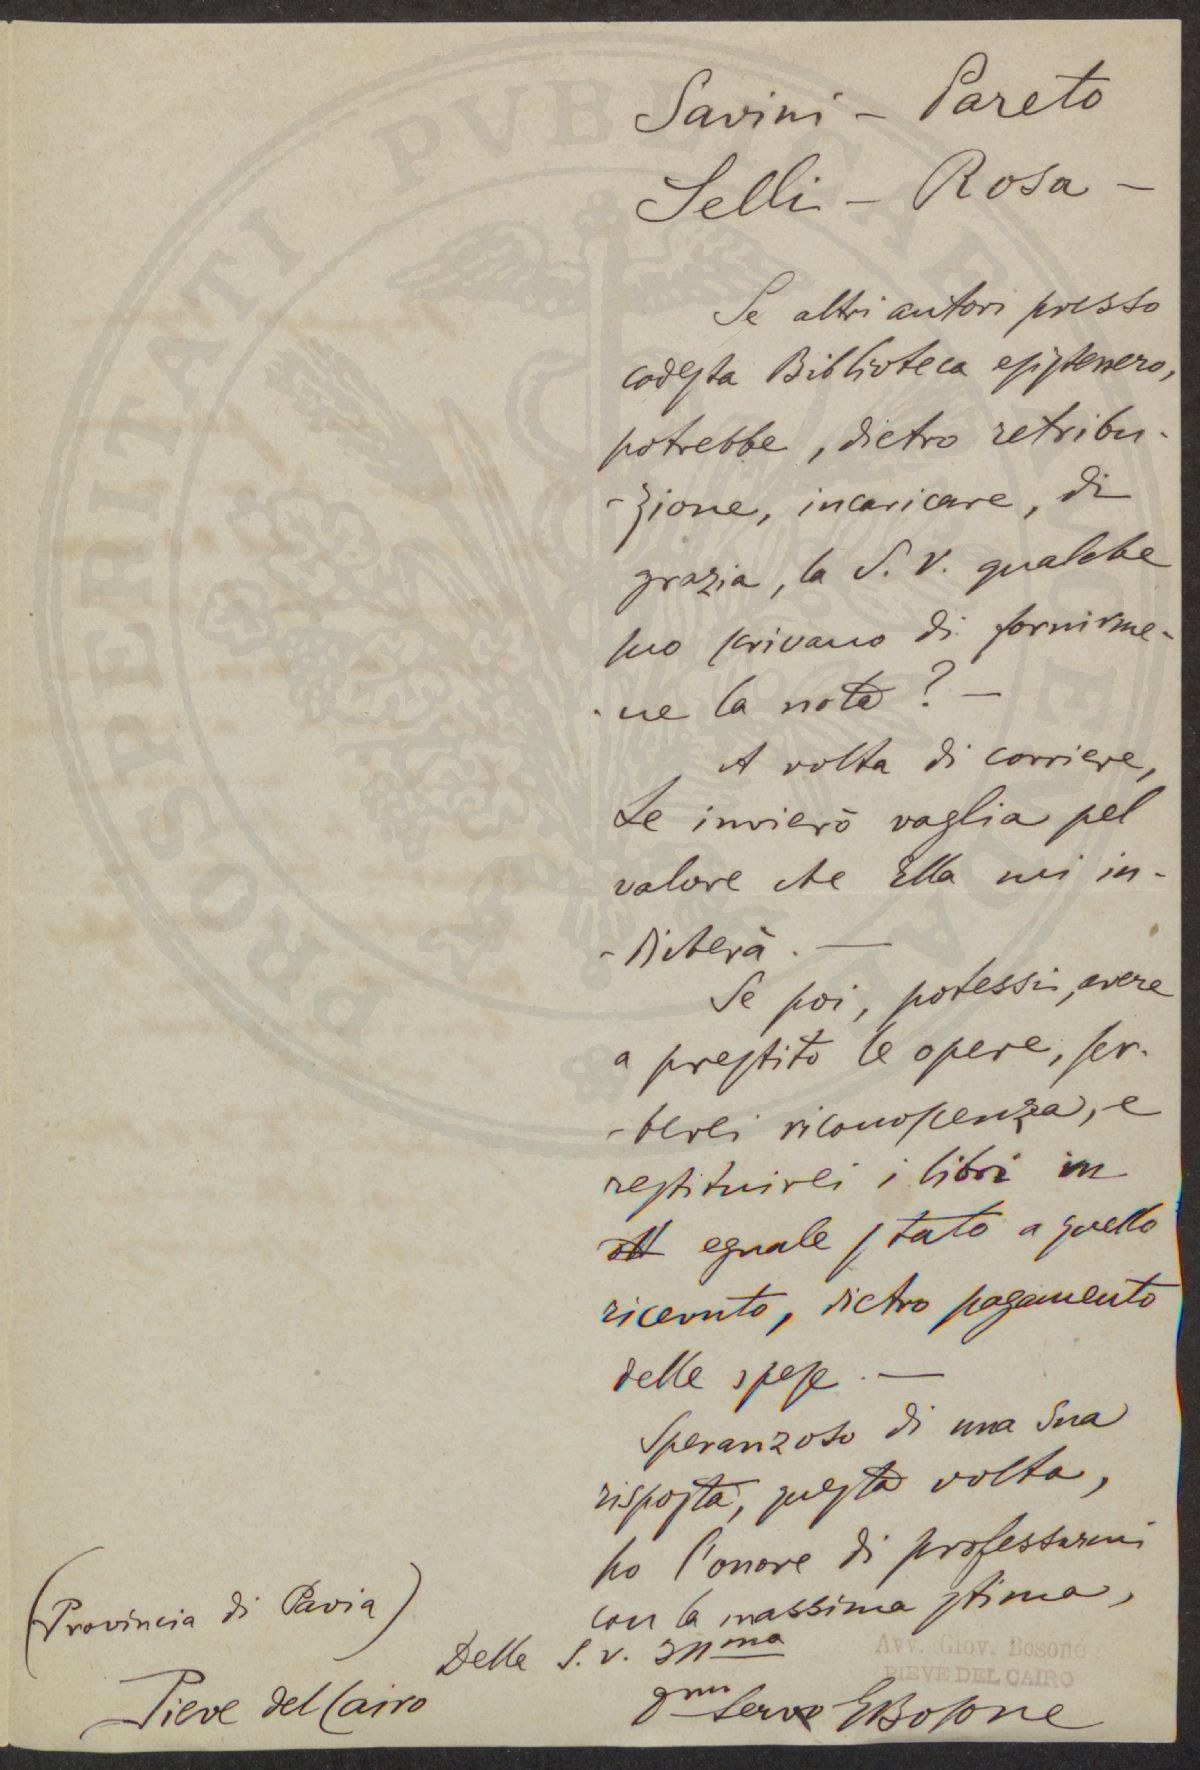 Savini – Pareto
Selli – Rosa –
Se altri autori presso
codesta Biblioteca esistessero,
potrebbe, dietro retribu-
-zione, incaricare, di
grazia, la S. V. qualche
suo scrivano di fornirme-
-ne la nota? –
A volta di corriere,
Le invierò vaglia pel
valore che Ella mi in-
-dicherà. —
Se poi, potessi, avere
a prestito le opere, ser-
-berei riconoscenza, e
restituirei i libri in
eguale stato a quello
ricevuto, dietro pagamento
delle spese. —
Speranzoso di una Sua
risposta, questa volta,
ho l'onore di professarmi
con la massima stima,
Della S. V. Illma
Avv. Giov. Bosone
PIEVE DEL CAIRO
servo GBosone
(Provincia di Pavia)
Pieve del Cairo
PROSPERITATI PVBLICAE